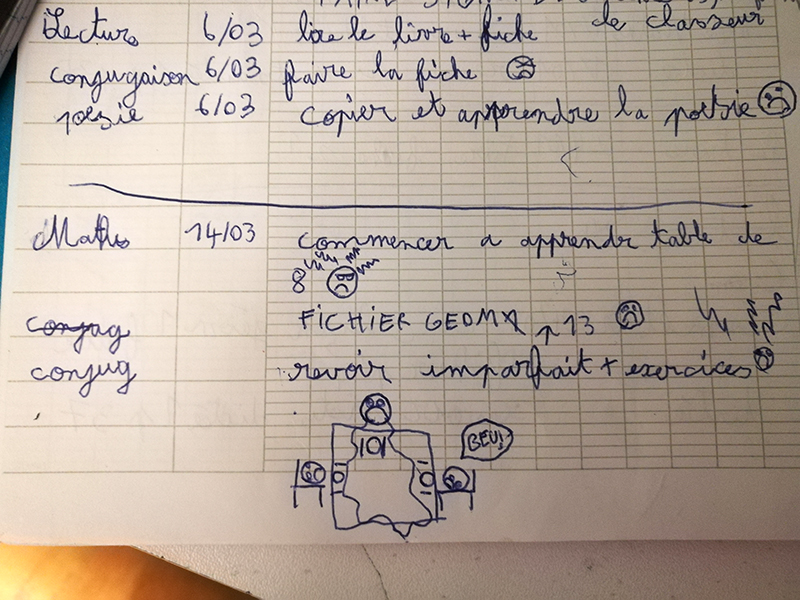 de classeur
Lecture 6/03 lire le livre + fiche
conjugaison 6/03 faire la fiche
poésie 6/03 copier et apprendre la poésie
Maths 14/03 commencer a apprendre table de
8
conjug FICHIER GEOM p 13
conjug revoir imparfait + exercices
BEU!